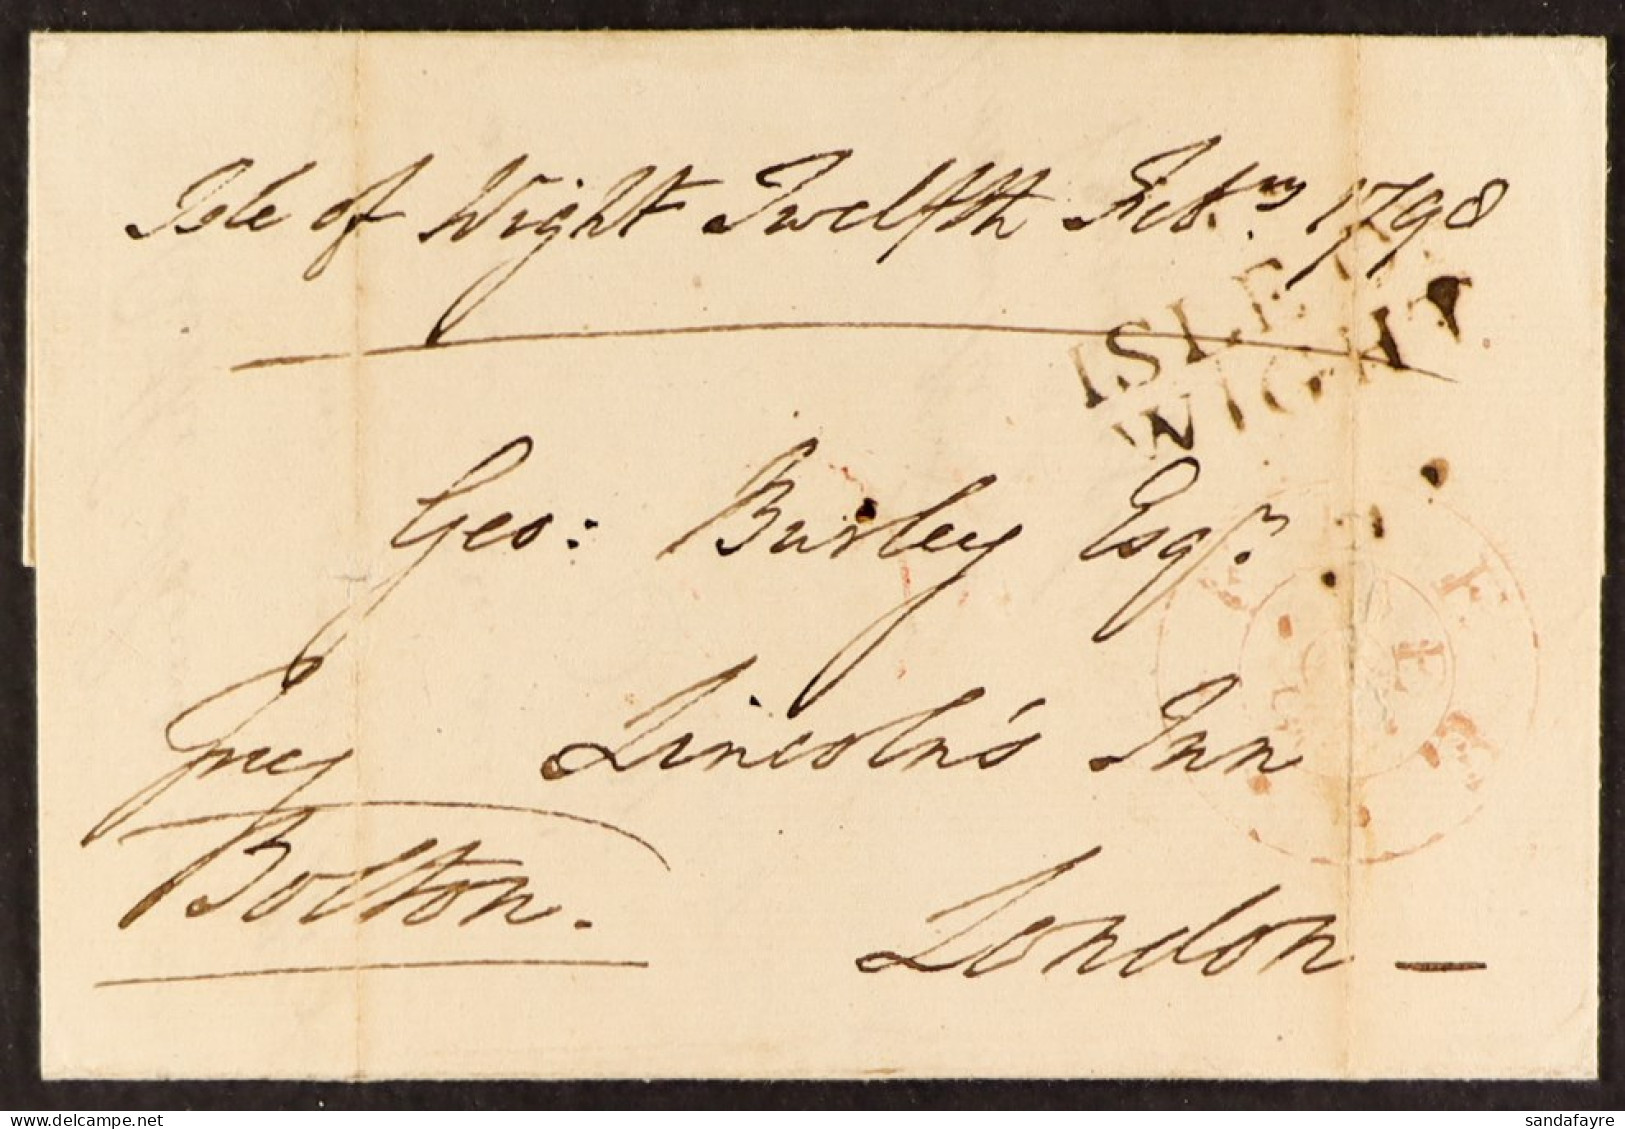 Isle of Wight Twelfth Febry. 1798
ISLE OF
WIGHT
Geo: Burley Esqr.
Lincoln's Inn
London —
Free
Bolton.
sandafayre